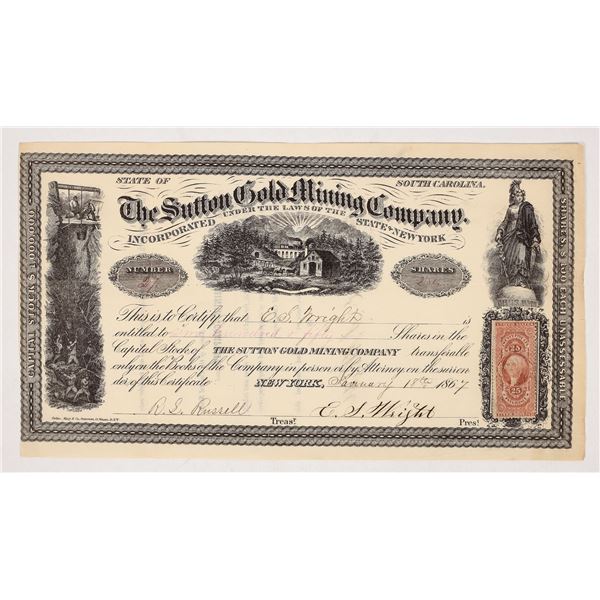 STATE OF SOUTH CAROLINA.
The Sutton Gold Mining Company.
INCORPORATED UNDER THE LAWS OF THE STATE OF NEW YORK
CAPITAL STOCK $1,000,000
SHARES $ EACH UNASSESSABLE
NUMBER
SHARES
This is to Certify that E. S. Wright is
entitled to Shares in the
Capital Stock of THE SUTTON GOLD MINING COMPANY transferable
only on the Books of the Company in person or by Attorney on the surren
der of this Certificate NEW YORK, January 18th 1867
R. S. Russell E. S. Wright
Treast. Prest.
25
25